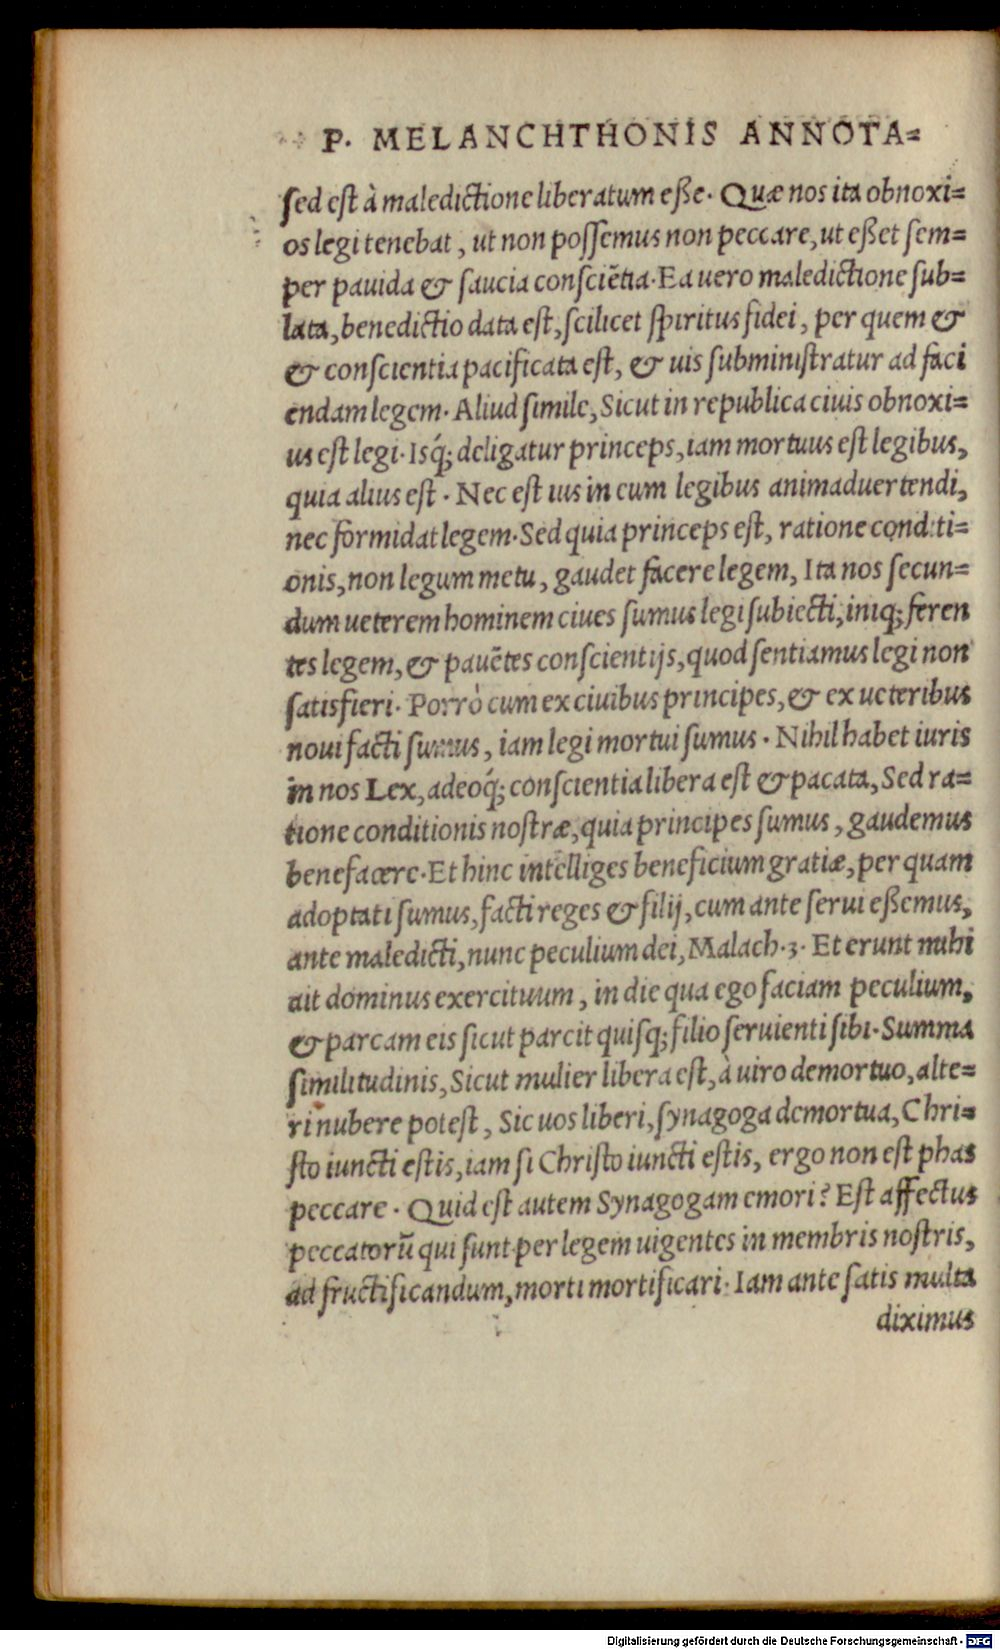 P. MELANCHTHONIS ANNOTA=
ſed eſt à maledictione liberatum eße. Quæ nos ita obnoxi=
os legi tenebat, ut non poſſemus non peccare, ut eßet ſem=
per pauida & ſaucia conſciẽtia. Ea uero maledictione ſub=
lata, benedictio data eſt, ſcilicet ſpiritus fidei, per quem &
& conſcientia pacificata eſt, & uis ſubminiſtratur ad faci
endam legem. Aliud ſimile, Sicut in republica ciuis obnoxi=
us eſt legi. Isq́; deligatur princeps, iam mortuus eſt legibus,
quia alius eſt. Nec eſt ius in eum legibus animaduertendi,
nec formidat legem. Sed quia princeps eſt, ratione conditi=
onis, non legum metu, gaudet facere legem, Ita nos ſecun=
dum ueterem hominem ciues ſumus legi ſubiecti, iniq; feren
tes legem, & pauẽtes conſcientijs, quod ſentiamus legi non
ſatisfieri. Porrò cum ex ciuibus principes, & ex ueteribus
noui facti ſumus, iam legi mortui ſumus. Nihil habet iuris
in nos Lex, adeoq́; conſcientia libera eſt & pacata, Sed ra=
tione conditionis noſtræ, quia principes ſumus, gaudemus
benefacere. Et hinc intelliges beneficium gratiæ, per quam
adoptati ſumus, facti reges & filij, cum ante ſerui eßemus,
ante maledicti, nunc peculium dei, Malach. 3. Et erunt mihi
ait dominus exercituum, in die qua ego faciam peculium,
& parcam eis ſicut parcit quiſq; filio ſeruienti ſibi. Summa
ſimilitudinis, Sicut mulier libera eſt, à uiro demortuo, alte=
ri nubere poteſt, Sic uos liberi, ſynagoga demortua, Chri=
ſto iuncti eſtis, iam ſi Chriſto iuncti eſtis, ergo non eſt phas
peccare. Quid eſt autem Synagogam emori? Eſt affectus
peccatorũ qui ſunt per legem uigentes in membris noſtris,
ad fructificandum, morti mortificari. Iam ante ſatis multa
diximus
Digitalisierung gefördert durch die Deutsche Forschungsgemeinschaft - DFG